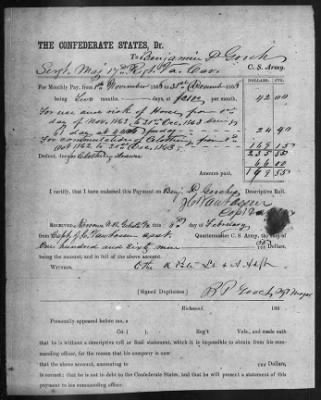 THE CONFEDERATE STATES, Dr.
To Benjamin P. Gooch
Sergt. Maj 17th Regt. Va. Cav. C. S. Army.
DOLLARS. CTS.
For Monthly Pay, from 1st November 1863 to 31st December 1863
being Two months at $21.00 per month. 42 00
For use and risk of Horse from 1st
day of Nov. 1863 to 31st Dec 1863 being
61 day at 40cts per day 24 40
For commutation of Clothing from
Oct 1862 to 31st Dec 1863
Deduct, for Clothing drawn 66 00
I certify, that I have endorsed this Payment on Benj. P. Gooch's Descriptive Roll.
Received, of
day of February
from Capt.
Quartermaster C. S. Army, the sum of
One hundred and Sixty nine Dollars,
being the amount, and in full of the above account.
Witness,
[Signed Duplicates] B. P. Gooch Sgt Major
Richmond, 186
Personally appeared before me, a
Co. ( ), Reg't Vols., and made oath
that he is without a descriptive roll or final statement, which it is impossible to obtain from his com-
manding officer, for the reason that his company is now
that the above account, amounting to Dollars,
is correct; that he is not in debt to the Confederate States, and that he will present a statement of this
payment to his commanding officer.